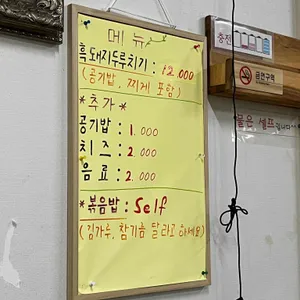 메뉴
흑돼지두루치기 : 12.000
(공기밥, 찌게 포함)
*추가*
공기밥 : 1.000
치즈 : 2.000
음료 : 2.000
*볶음밥 : Self
(김가루, 참기름 달라고 하세요)
충전
금연구역
물은 셀프